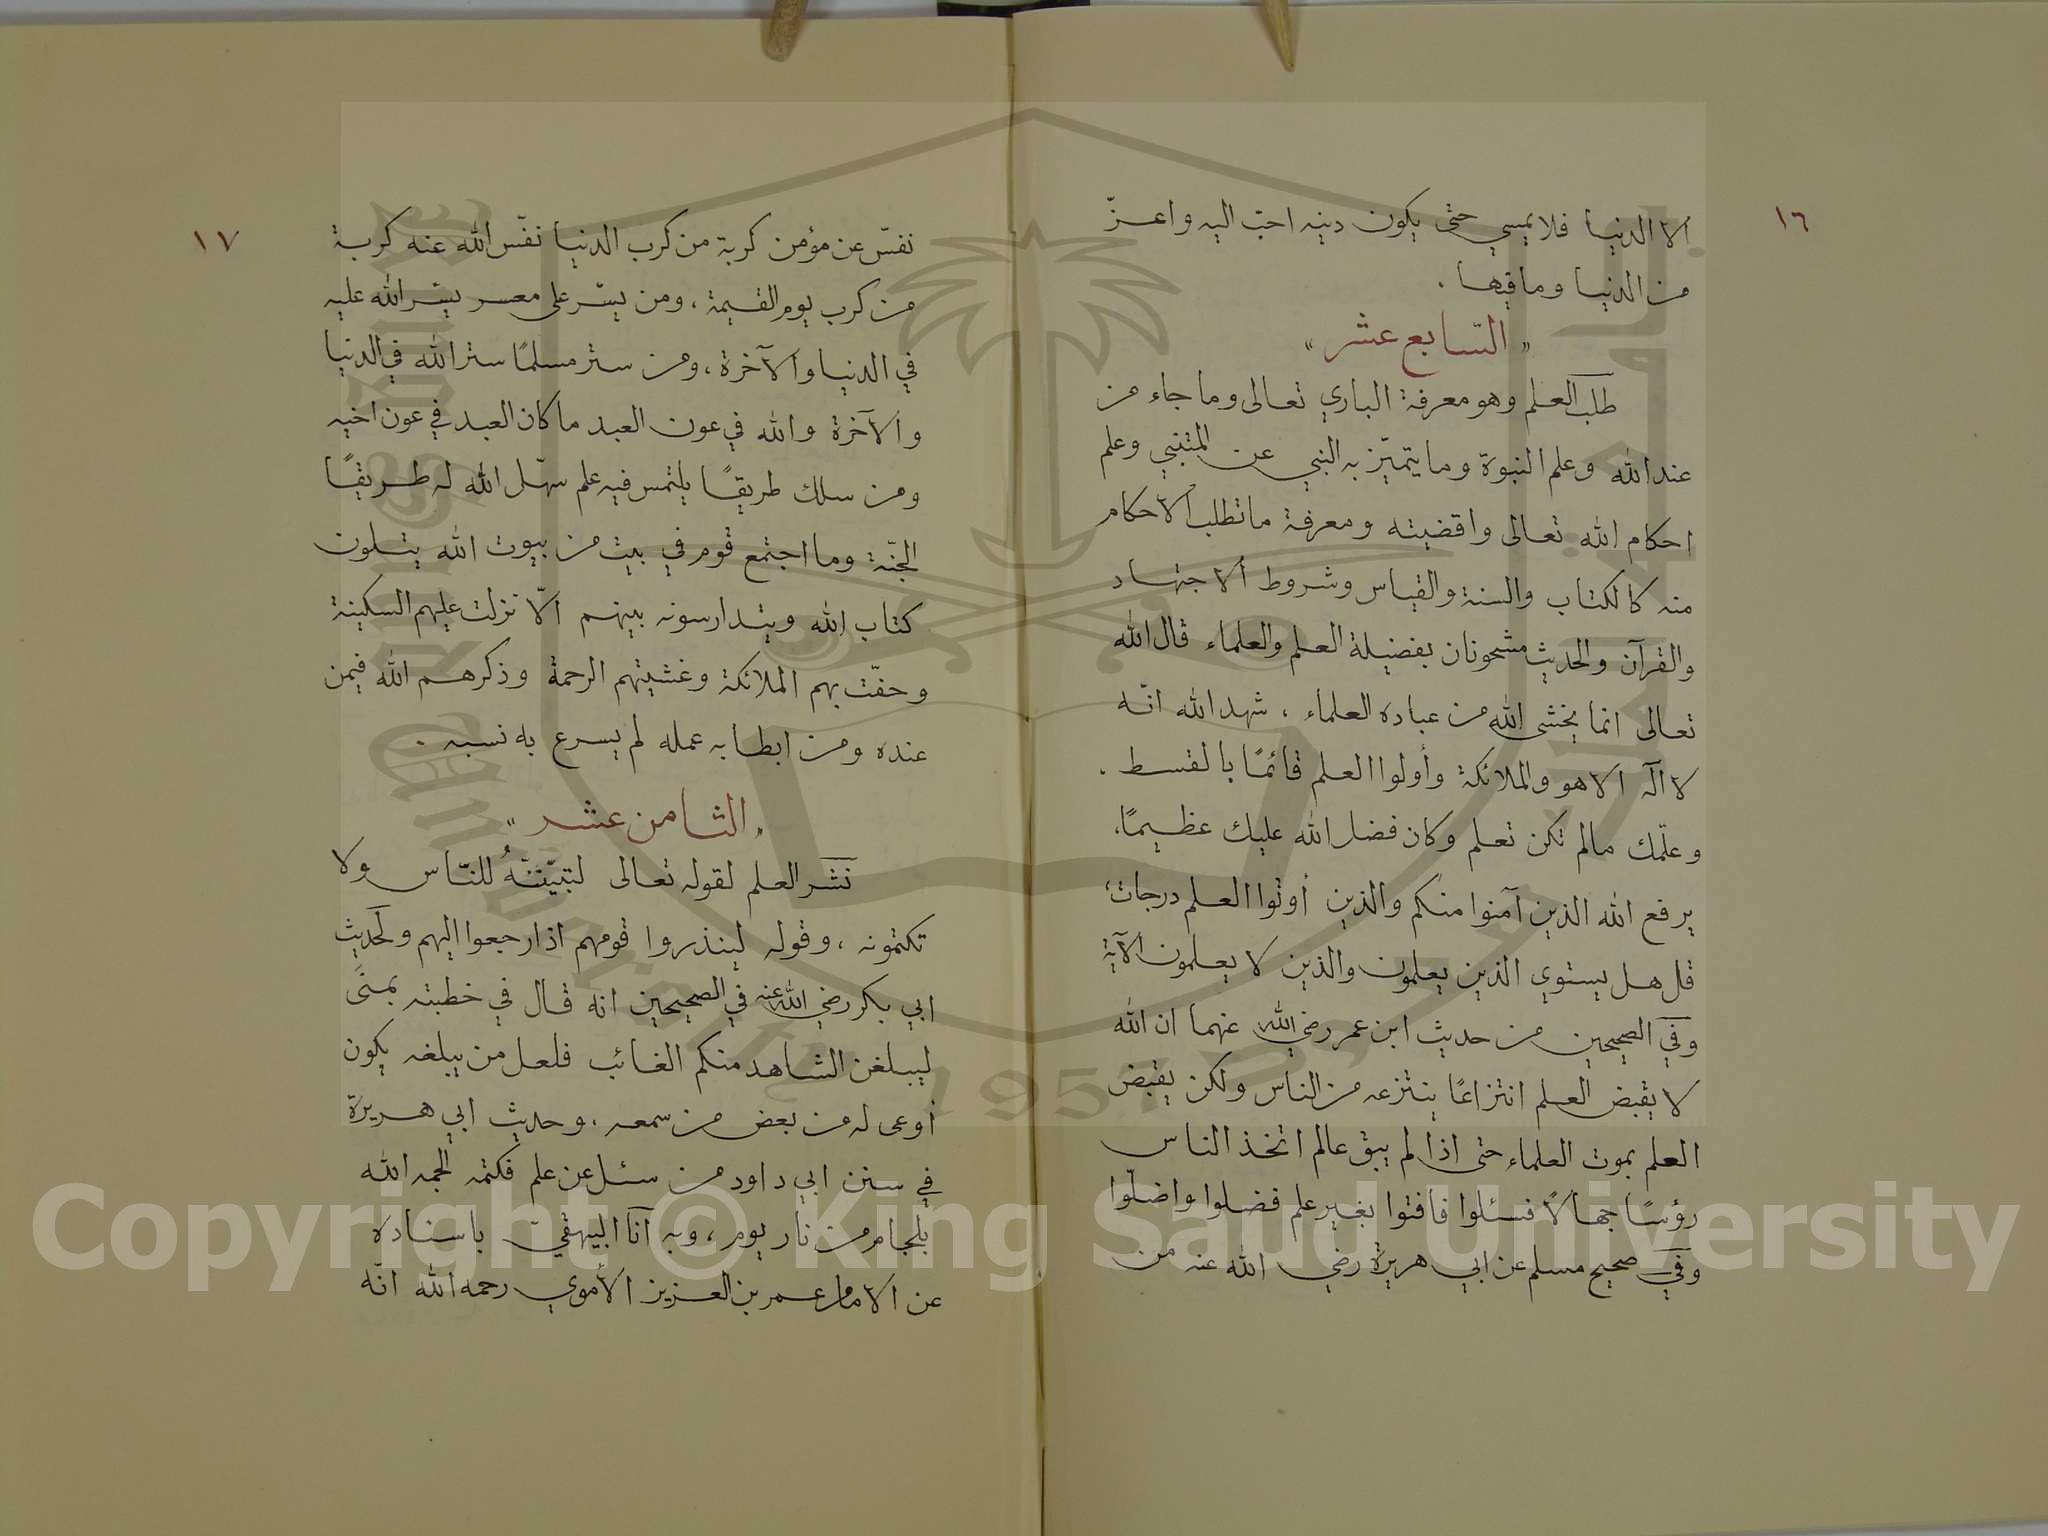 ١٦
الا الدنيا فلا يمسي حتى يكون دينه احبّ اليه واعزّ
من الدنيا وما فيها .
« السّابع عشر »
طلب العلم وهو معرفة الباري تعالى وما جاء من
عند الله وعلم النبوة وما يتميّز به النبي عن المتنبي وعلم
احكام الله تعالى واقضيته ومعرفة ما تطلب الاحكام
منه كالكتاب والسنة والقياس وشروط الاجتهاد
والقرآن والحديث مشحونان بفضيلة العلم والعلماء قال الله
تعالى انما يخشى الله من عباده العلماء ، شهد الله انّه
لا اله الا هو والملائكة وأولوا العلم قائمًا بالقسط .
وعلّمك مالم تكن تعلم وكان فضل الله عليك عظيمًا،
يرفع الله الذين آمنوا منكم والذين أوتوا العلم درجات،
قل هل يستوي الذين يعلمون والذين لا يعلمون الآية
وفي الصحيحين من حديث ابن عمر رضي الله عنهما ان الله
لا يقبض العلم انتزاعًا ينتزعه من الناس ولكن يقبض
العلم بموت العلماء حتى اذا لم يبق عالم اتخذ الناس
رؤسًا جهالًا فسئلوا فافتوا بغير علم فضلوا واضلّوا
وفي صحيح مسلم عن ابي هريرة رضي الله عنه من
١٧
نفسّ عن مؤمن كربة من كرب الدنيا نفّس الله عنه كربة
من كرب يوم القيمة ، ومن يسّر على معسر يسّر الله عليه
في الدنيا والآخرة ، ومن ستر مسلمًا ستر الله في الدنيا
والآخرة والله في عون العبد ما كان العبد في عون اخيه
ومن سلك طريقًا يلتمس فيه علم سهّل الله له طريقًا
الجنّة وما اجتمع قوم في بيت من بيوت الله يتلون
كتاب الله ويتدارسونه بينهم الّا نزلت عليهم السكينة
وحفّت بهم الملائكة وغشيتهم الرحمة وذكرهم الله فيمن
عنده ومن ابطا به عمله لم يسرع به نسبه .
« الثامن عشر »
نشر العلم لقوله تعالى لتبيّننّهُ للنّاس ولا
تكتمونه ، وقوله لينذروا قومهم اذا رجعوا اليهم ولحديث
ابي بكر رضي الله عنه في الصحيحين انه قال في خطبته بمنىً
ليبلغن الشاهد منكم الغائب فلعل من يبلغه يكون
أوعى له من بعض من سمعه ، وحديث ابي هريرة
في سنن ابي داود من سئل عن علم فكتمه الجمه الله
بلجام من نار يوم ، وبه آنا البيهقيّ باسناده
عن الامام عمر بن العزيز الأموي رحمه الله انّه
Copyright © King Saud University
1957